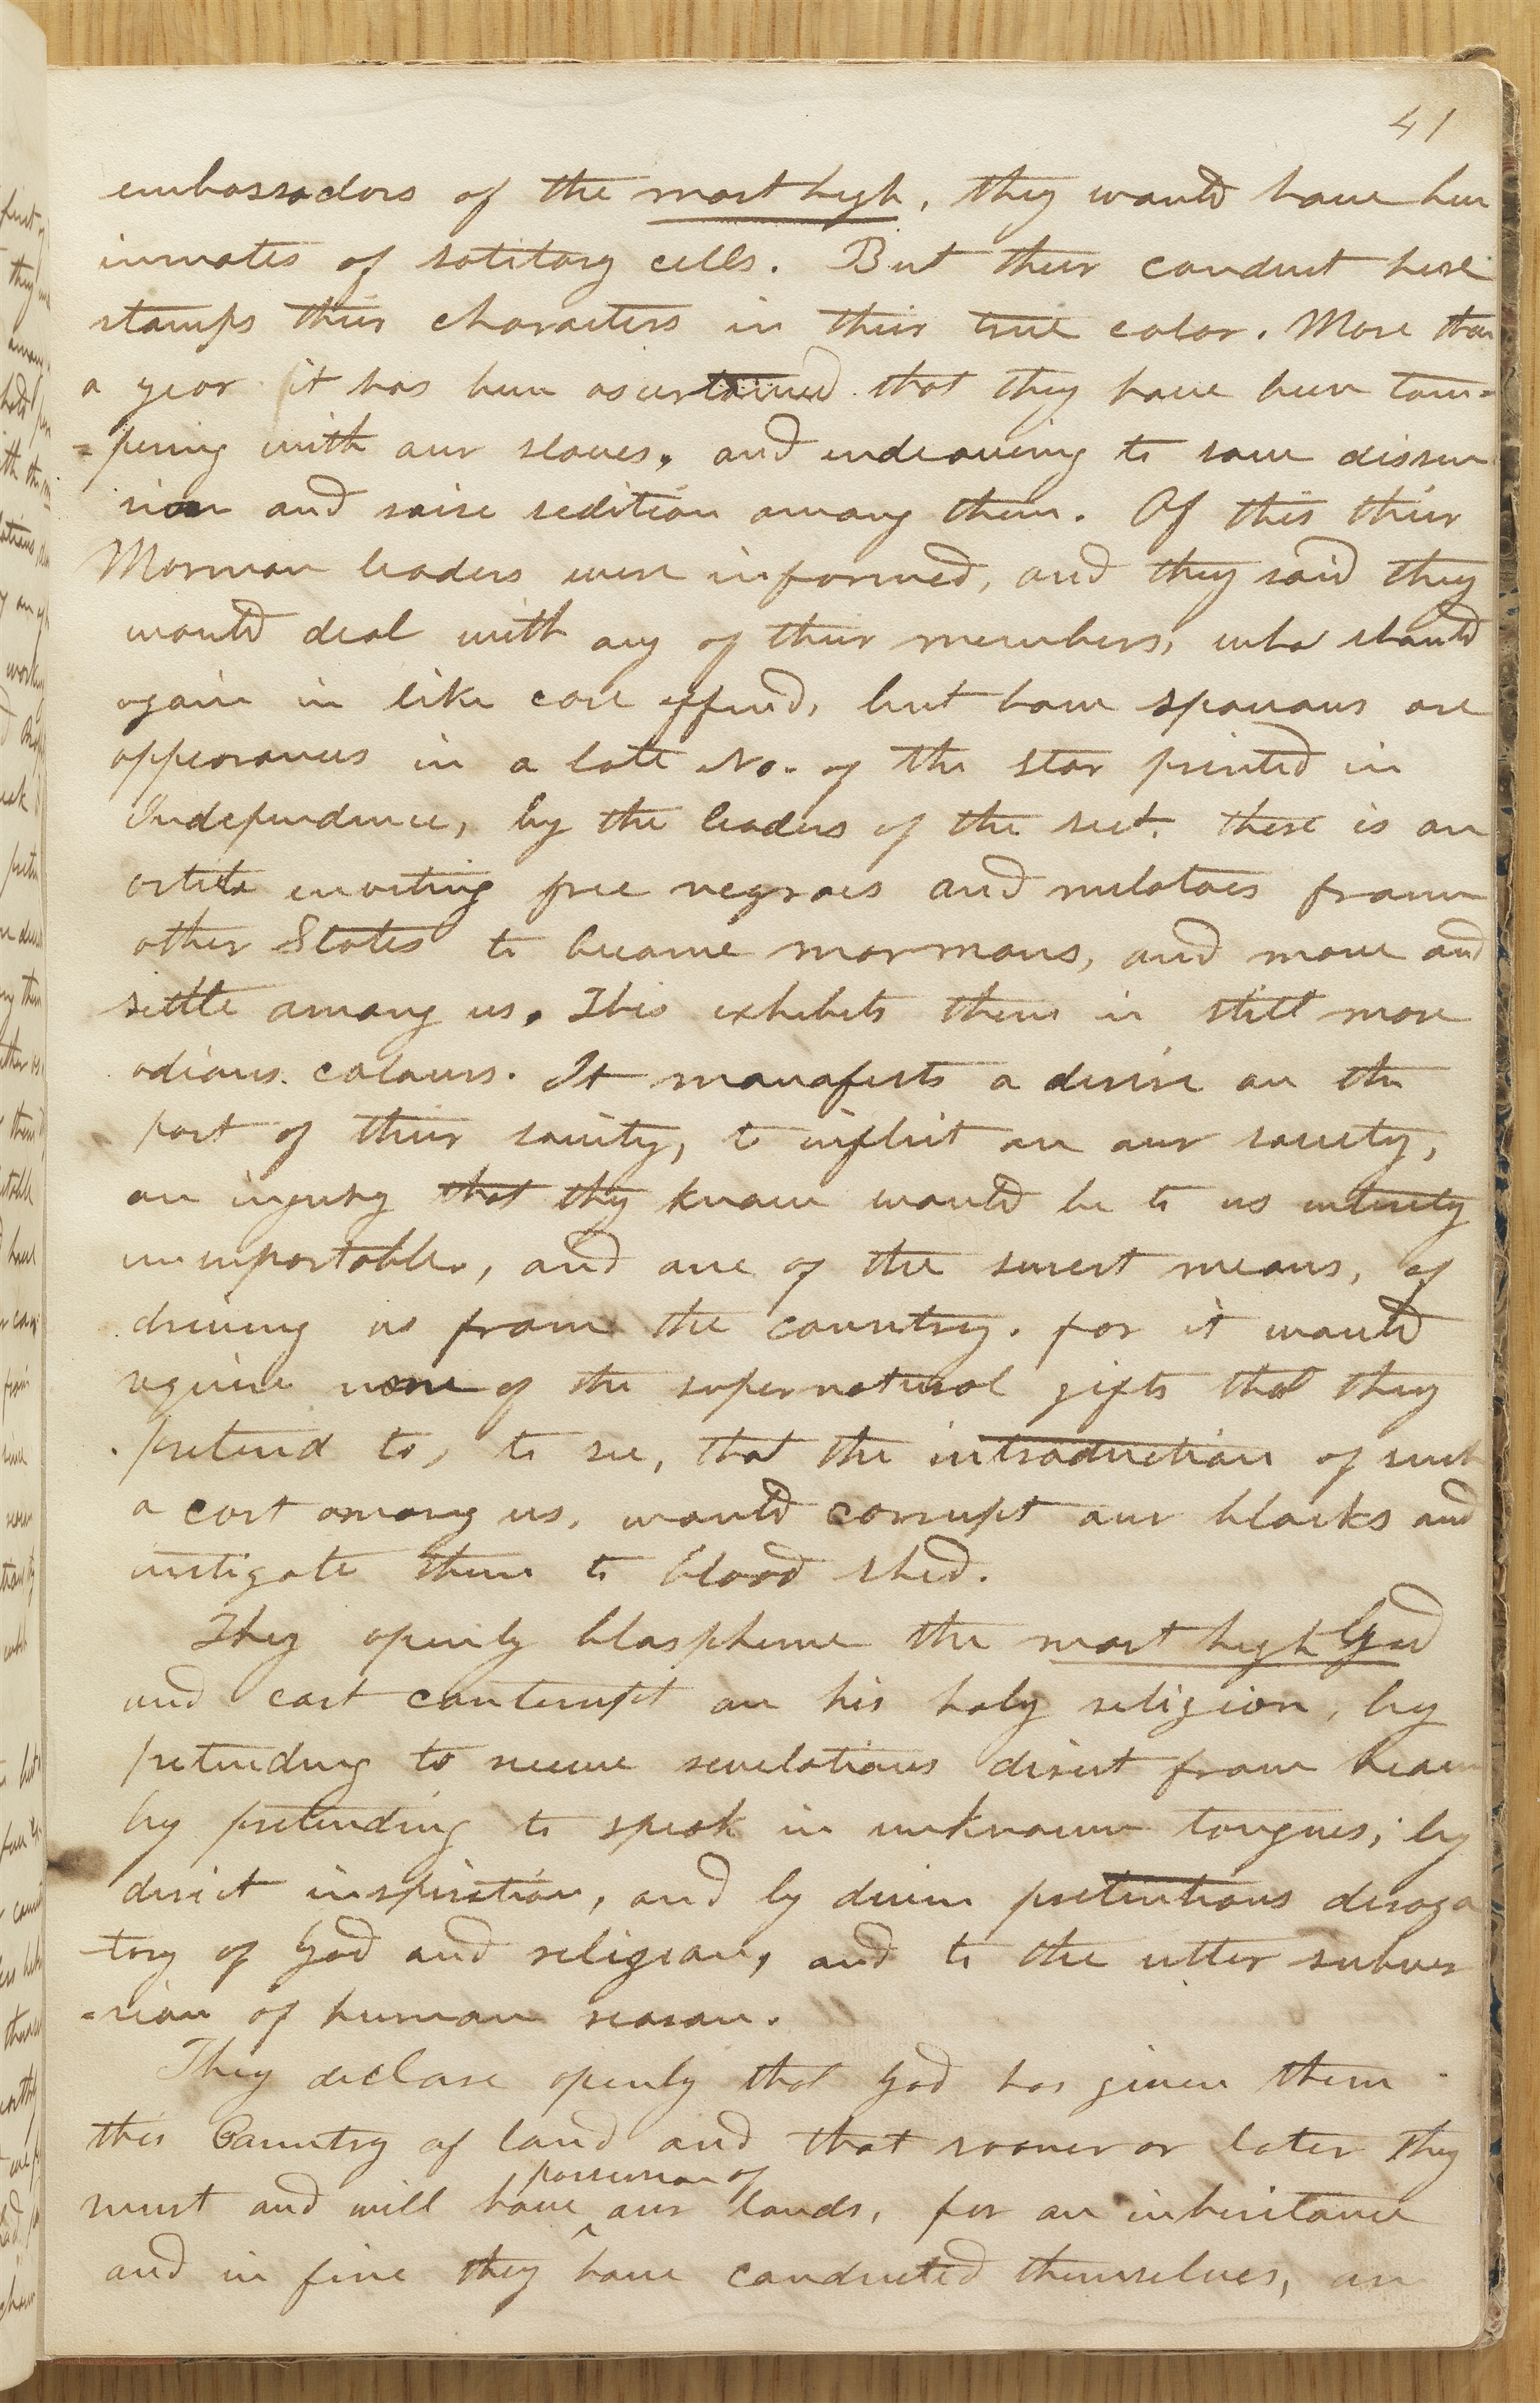 41
embassadors of the most high, they would have been
inmates of solitary cells. But their conduct here
stamps their characters in their true color. More than
a year it has been ascertained that they have been tam=
=pering with our slaves, and endeavering to sow dissen
sion and raise sedition among them. Of this their
Morman leaders were informed, and they said they
would deal with any of their members, who should
again in like case offend, but how spacious are
appearances in a late No. of the star printed in
Independence, by the leaders of the sect. there is an
artile inviting free negroes and mulatoes from
other States to become mormons, and move and
settle among us. This exhibits them in still more
odious colours. It manafests a desire on the
part of their society, to inflict on our society,
an injury that they know would be to us entirely
insupportable, and one of the surest means, of
driving us from the country. for it would
require none of the supernatural gifts that they
pretend to, to see, that the introduction of such
a cast among us, would corrupt our blacks and
instigate them to blood shed.
They openly blaspheme the most high God
and cast contempt on his holy religion, by
pretending to receive revelations direct from heaven
by pretending to speak in unknown tongues; by
direct inspiration, and by divine pretentions deroga
tory of God and religion, and to the utter subver
=sion of human reason.
They declare openly that God has given them
this Country of land and that sooner or later they
must and will have ^possession of our lands, for an inheritance
and in fine they have conducted themselves, on